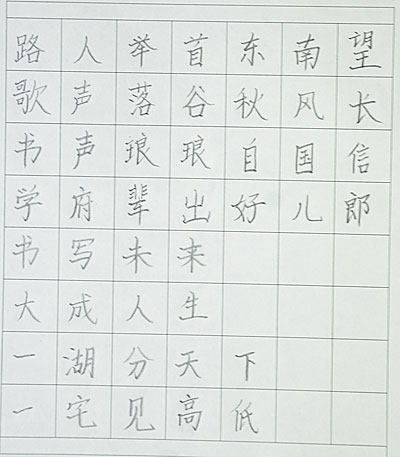 路人举首东南望
歌声落谷秋风长
书声琅琅自国信
学府辈出好儿郎
书写未来
大成人生
一湖分天下
一宅见高低